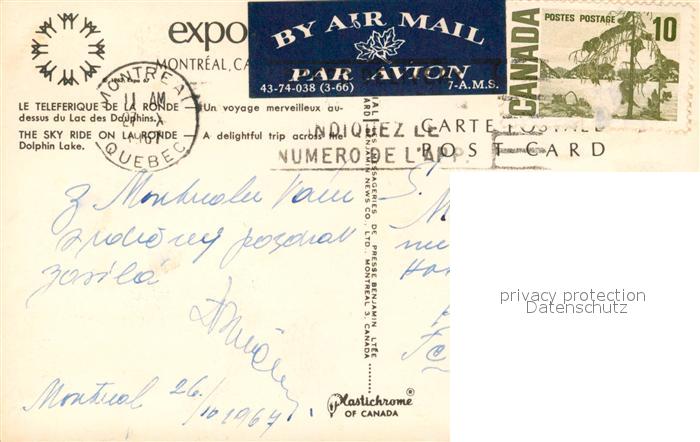 expo
MONTRÉAL, CA
BY AIR MAIL
PAR AVION
43-74-038 (3-66) 7-A.M.S.
CANADA
POSTES POSTAGE
10
MONTREAL
11 AM
QUEBEC
LE TELEFERIQUE DE LA RONDE
dessus du Lac des Dauphins.
Un voyage merveilleux au-
THE SKY RIDE ON LA RONDE
Dolphin Lake.
A delightful trip across the
INDIQUEZ LE
NUMERO DE L'APP
CARTE POSTALE
POST CARD
Z Montrealu Vám
srdečný pozdrav
zasílá
Montreal 26/10 1967
LES MESSAGERIES DE PRESSE BENJAMIN LTÉE
BENJAMIN NEWS CO., LTD., MONTREAL 3, CANADA
Plastichrome ®
OF CANADA
privacy protection
Datenschutz